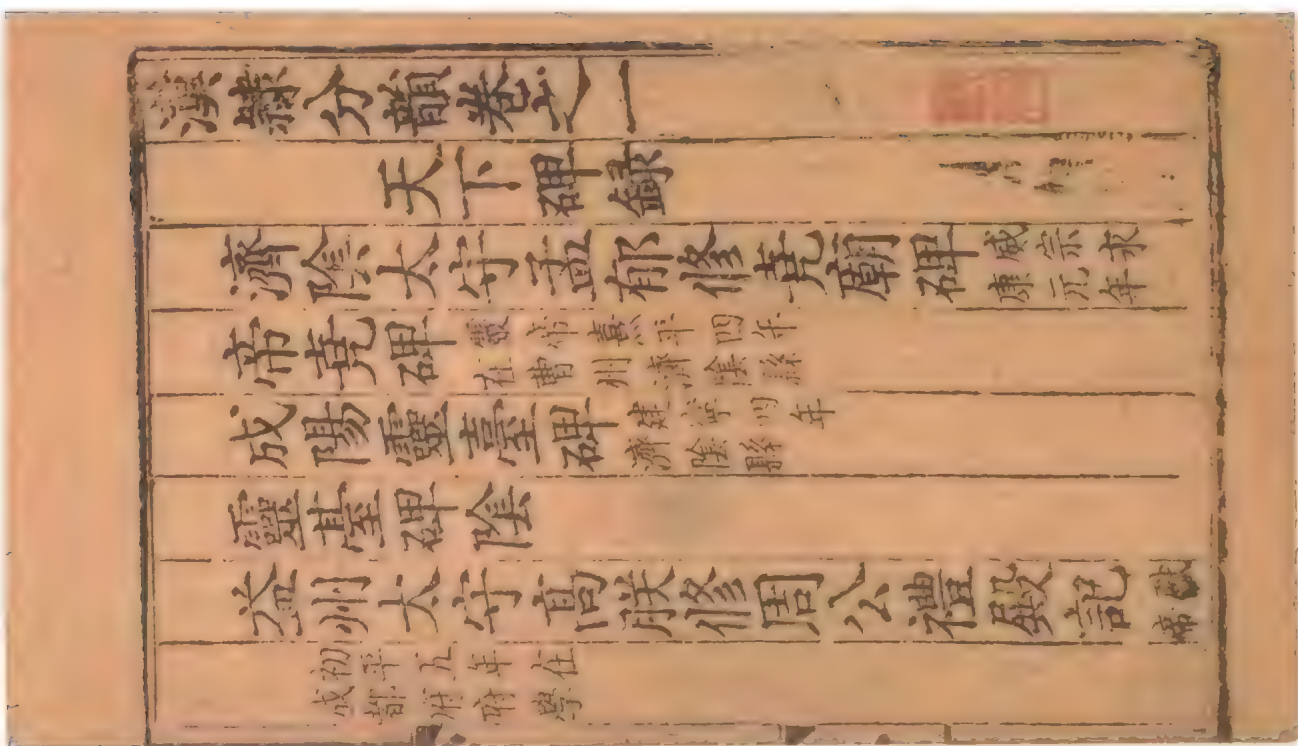 漢隸分韻卷之一
天下碑録
濟陰太守孟郁修堯廟碑 威宗永康元年
帝堯碑 靈帝熹平四年在曹州濟陰縣
成陽靈臺碑 建寧四年濟陰縣
靈臺碑陰
益州太守高朕修周公禮殿記 獻帝
初平五年在成都府府學